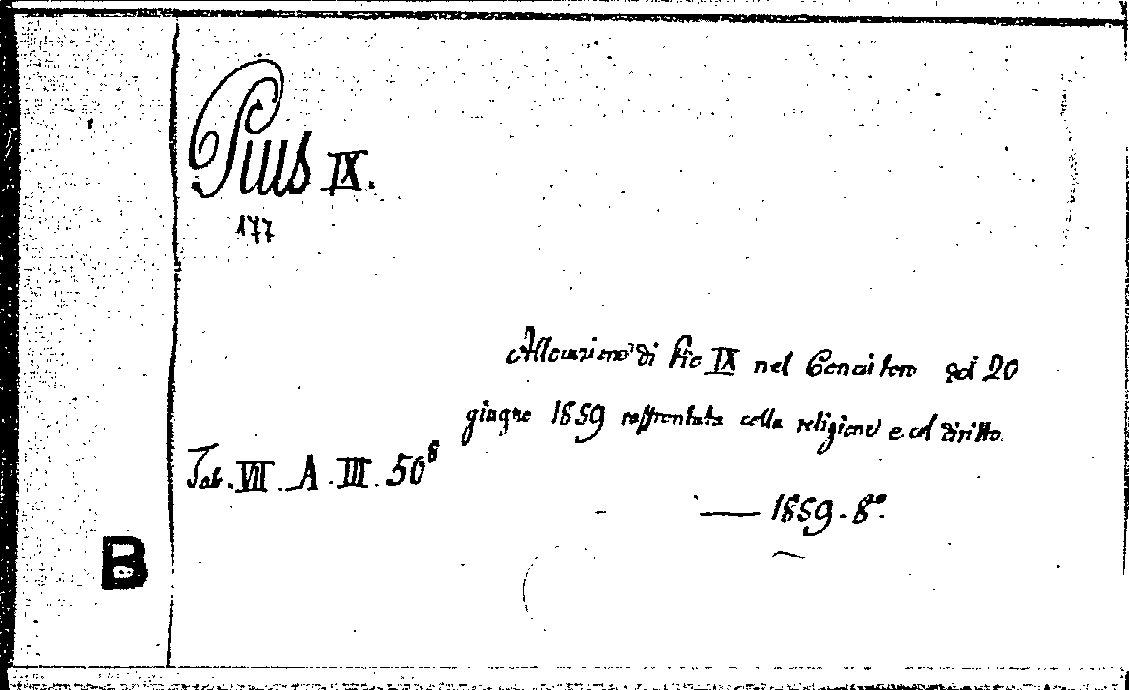 Pius IX.
177
Allocuzione di Pio IX nel Concistoro del 20
giugno 1859 raffrontata colla religione e col diritto.
Tab. VII. A. III. 50⁶
— 1859. 8°.
B